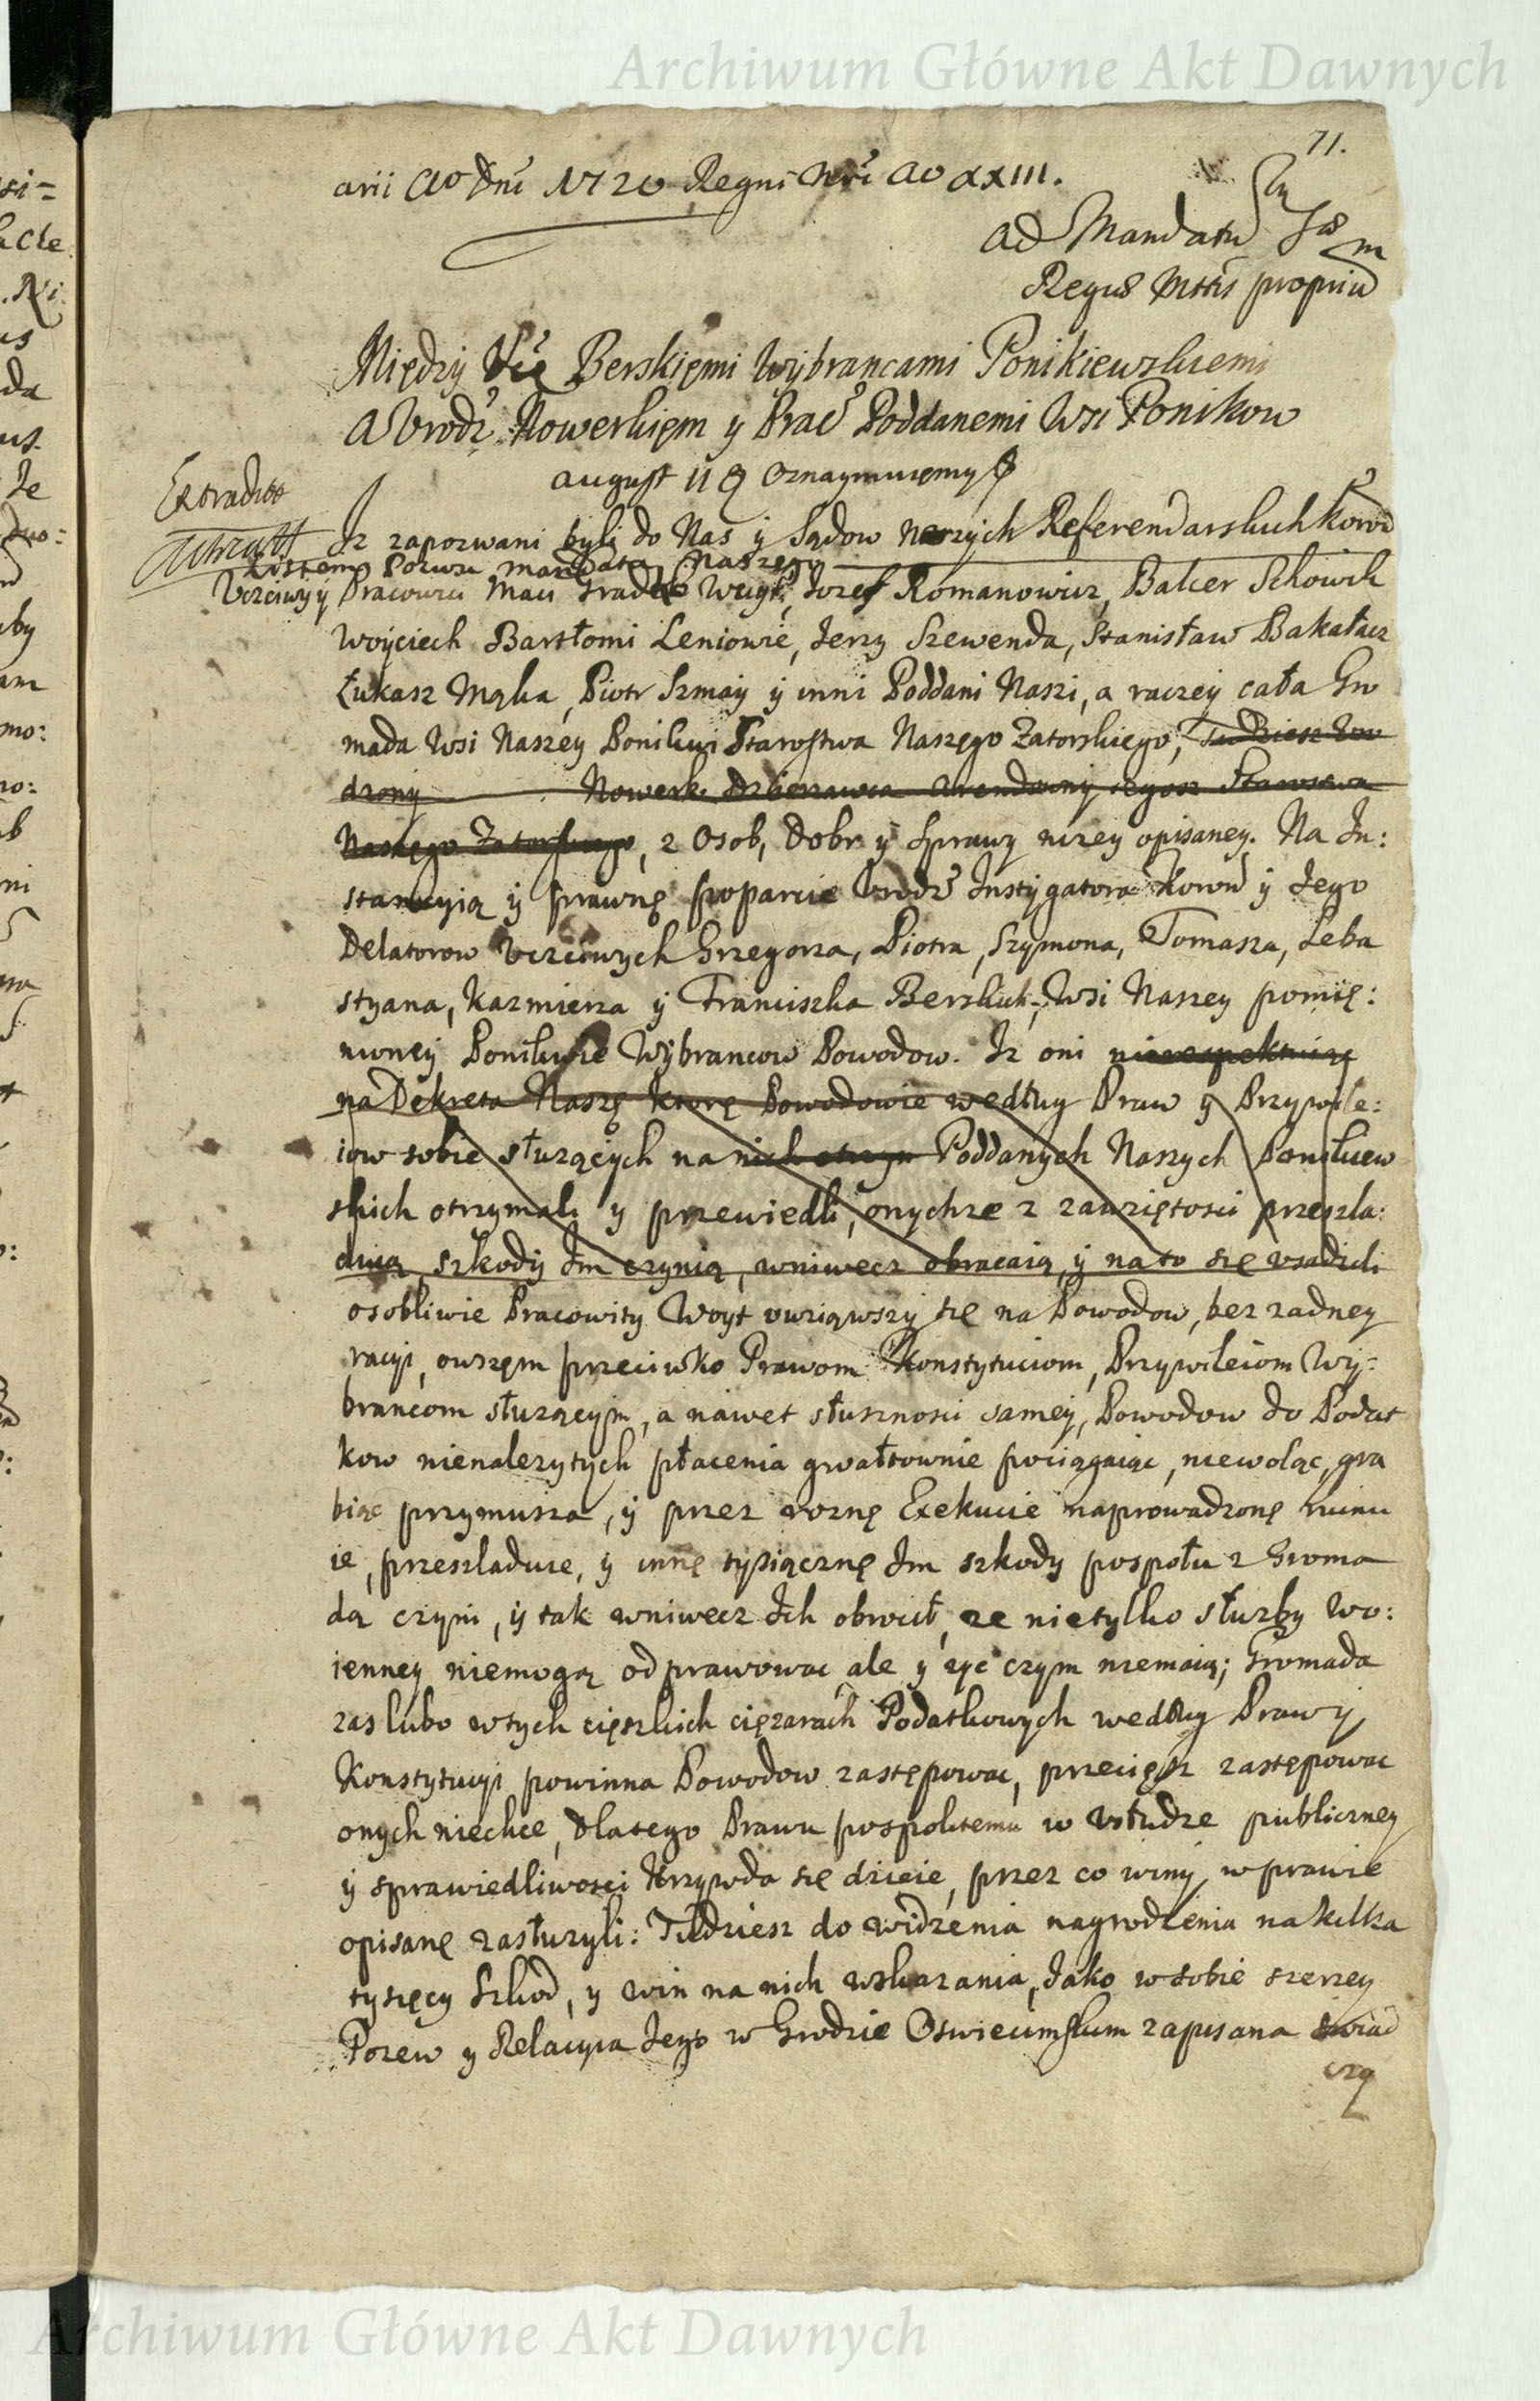 Archiwum Główne Akt Dawnych
71.
arii Ao Dni 1720 Regni Nri Ao XXIII.
Ad Mandatu
Regiae Mttis propriu
Między Ucz Berskięmi Wybrancami Ponikiewskiemi
A Urodz. Nowerskięm y Prac Poddanemi Wsi Ponikow
August II Oznaymuięmy
Extradit
Iz zapozwani byli do Nas y Sądow naszych Referendarskich Koron
Listem Pozwu mandatu Naszego
Uczciwy y Pracowici Maci Woyt, Jozef Romanowicz, Balcer Schowik
Woyciech Bartłomi Leniowie, Jerzy Szewenda, Stanisław Bakałarz
Łukasz Mąka, Piotr Szmay y inni Poddani Naszi, a raczey cała Gro
mada Wsi Naszey Ponikwi Starostwa Naszęgo Zatorskiego, Tudziesz Uro
dzony Nowerk. Dzierzawca Arendowny tegosz Starostwa
Naszego Zatorskiego, z Osob, Dobr y Sprawy nizey opisaney. Na In:
stancyią y prawnę poparcie Urodz Instygatora Koron y Jego
Delatorow Uczciwych Grzegorza, Piotra, Szymona, Tomasza, Seba
styana, Kazmierza y Franciszka Berskich, Wsi Naszey pomię:
nioney Ponikwie Wybrancow Powodow. Iz oni nierespektuiąc
na Dekreta Naszę ktorę Powodowie według Praw y Przywile:
iow sobie słuzących na nich otrzym Poddanych Naszych Ponikiew
skich otrzymali y przewiedli, onychze z zawziętosci przeszla:
duią, szkody Im czynią, wniwecz obracaią, y na to się usadzili
osobliwie Pracowity Woyt uwziąwszy się na Powodow, bez zadney
racyi, owszęm przeciwko Prawom Konstytuciom, Przywileiom Wy:
brancom słuzącym, a nawet słusznosci samey, Powodow do Podat
kow nienalezytych płacenia gwałtownie pociągaiąc, niewoląc, gra
biąc przymusza, y przez roznę Exekucie naprowadzonę ruinu
ie, przeszladuie, y innę tysiącznę Im szkody pospołu z Groma
dą czyni, y tak wniwecz Ich obrocił, ze nietylko słuzby Wo:
ienney niemogą odprawowac, ale y zyc czym niemaią; Gromada
zas lubo w tych cięszkich cięzarach Podatkowych według Praw y
Konstytucyi powinna Powodow zastępowac, przecięsz zastępowac
onych niechce, dlatego Prawu pospolitemu w Usłudze publiczney
y sprawiedliwosci Krzywda się dzieie, przez co winy w prawie
opisanę zasłuzyli: Tudziesz do widzenia nagrodzenia na kilka
tysięcy Szkod, y win na nich wskazania, Jako w sobie szerzey
Pozew y Relacyia Jego w Grodzie Oswiecimskim zapisana swiad
czą
Archiwum Główne Akt Dawnych